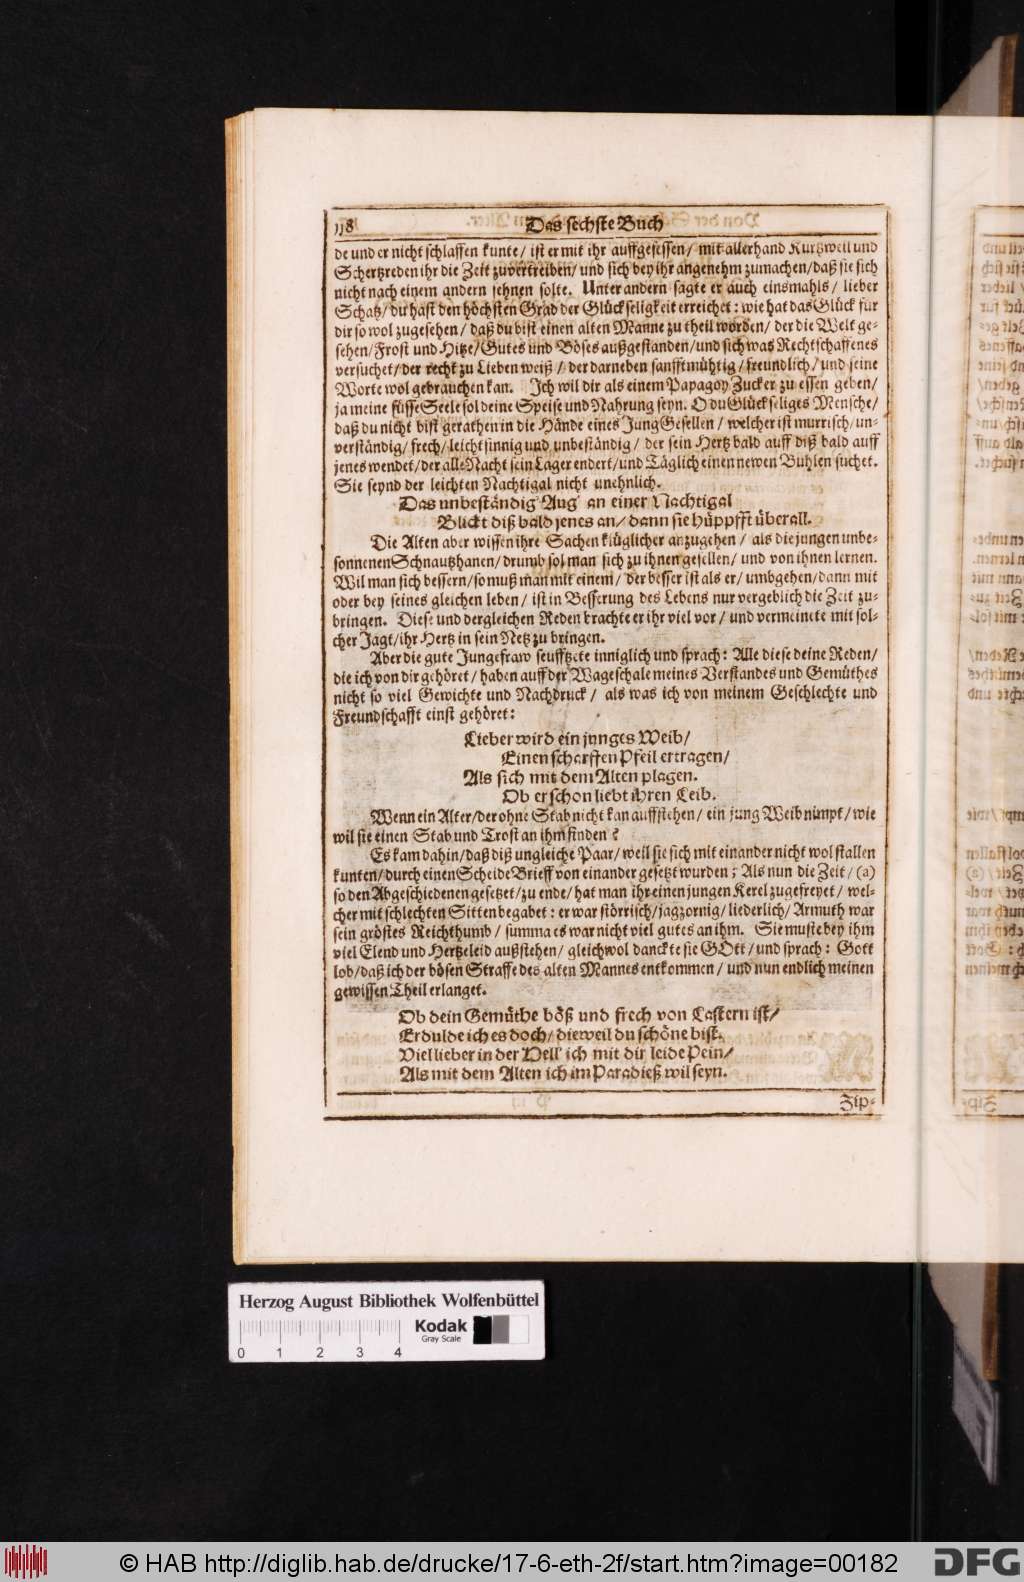 118 Das sechste Buch
de und er nicht schlaffen kunte / ist er mit ihr auffgesessen / mit allerhand Kurtzweil und
Schertzreden ihr die Zeit zuvertreiben / und sich bey ihr angenehm zumachen / daß sie sich
nicht nach einem andern sehnen solte. Unter andern sagte er auch einsmahls / lieber
Schatz / du hast den höchsten Grad der Glückseligkeit erreichet : wie hat das Glück für
dir so wol zugesehen / daß du bist einen alten Manne zu theil worden / der die Welt ge-
sehen / Frost und Hitze / Gutes und Böses außgestanden / und sich was Rechtschaffenes
versuchet / der recht zu Lieben weiß / der darneben sanfftmühtig / freundlich / und seine
Worte wol gebrauchen kan. Ich wil dir als einem Papagoy Zucker zu essen geben /
ja meine süsse Seele sol deine Speise und Nahrung seyn. O du Glückseliges Mensche /
daß du nicht bist gerathen in die Hände eines Jung Gesellen / welcher ist murrisch / un-
verständig / frech / leichtsinnig und unbeständig / der sein Hertz bald auff diß bald auff
jenes wendet / der alle Nacht sein Lager endert / und Täglich einen newen Buhlen suchet.
Sie seynd der leichten Nachtigal nicht unehnlich.
Das unbeständig Aug' an einer Nachtigal
Blickt diß bald jenes an / dann sie hüppfft überall.
Die Alten aber wissen ihre Sachen klüglicher anzugehen / als die jungen unbe-
sonnenen Schnautzhanen / drumb sol man sich zu ihnen gesellen / und von ihnen lernen.
Wil man sich bessern / so muß man mit einem / der besser ist als er / umbgehen / dann mit
oder bey seines gleichen leben / ist in Besserung des Lebens nur vergeblich die Zeit zu-
bringen. Diese und dergleichen Reden brachte er ihr viel vor / und vermeinete mit sol-
cher Jagt / ihr Hertz in sein Netz zu bringen.
Aber die gute Jungefraw seufftzete inniglich und sprach : Alle diese deine Reden /
die ich von dir gehöret / haben auff der Wageschale meines Verstandes und Gemüthes
nicht so viel Gewichte und Nachdruck / als was ich von meinem Geschlechte und
Freundschafft einst gehöret :
Lieber wird ein junges Weib /
Einen scharffen Pfeil ertragen /
Als sich mit dem Alten plagen.
Ob er schon liebt ihren Leib.
Wenn ein Alter / der ohne Stab nicht kan auffstehen / ein jung Weib nimpt / wie
wil sie einen Stab und Trost an ihm finden ?
Es kam dahin / daß diß ungleiche Paar / weil sie sich mit einander nicht wol stallen
kunten / durch einen Scheide Brieff von einander gesetzt wurden ; Als nun die Zeit / (a)
so den Abgeschiedenen gesetzet / zu ende / hat man ihr einen jungen Kerel zugefreyet / wel-
cher mit schlechten Sitten begabet : er war störrisch / jagzornig / liederlich / Armuth war
sein gröstes Reichthumb / summa es war nicht viel gutes an ihm. Sie muste bey ihm
viel Elend und Hertzeleid außstehen / gleichwol danckte sie GOtt / und sprach : Gott
lob / daß ich der bösen Straffe des alten Mannes entkommen / und nun endlich meinen
gewissen Theil erlanget.
Ob dein Gemüthe böß und frech von Lastern ist /
Erdulde ich es doch / dieweil du schöne bist.
Viel lieber in der Hell' ich mit dir leide Pein /
Als mit dem Alten ich im Paradieß wil seyn.
Zip-
Herzog August Bibliothek Wolfenbüttel
Kodak
Gray Scale
0 1 2 3 4
© HAB http://diglib.hab.de/drucke/17-6-eth-2f/start.htm?image=00182
DFG